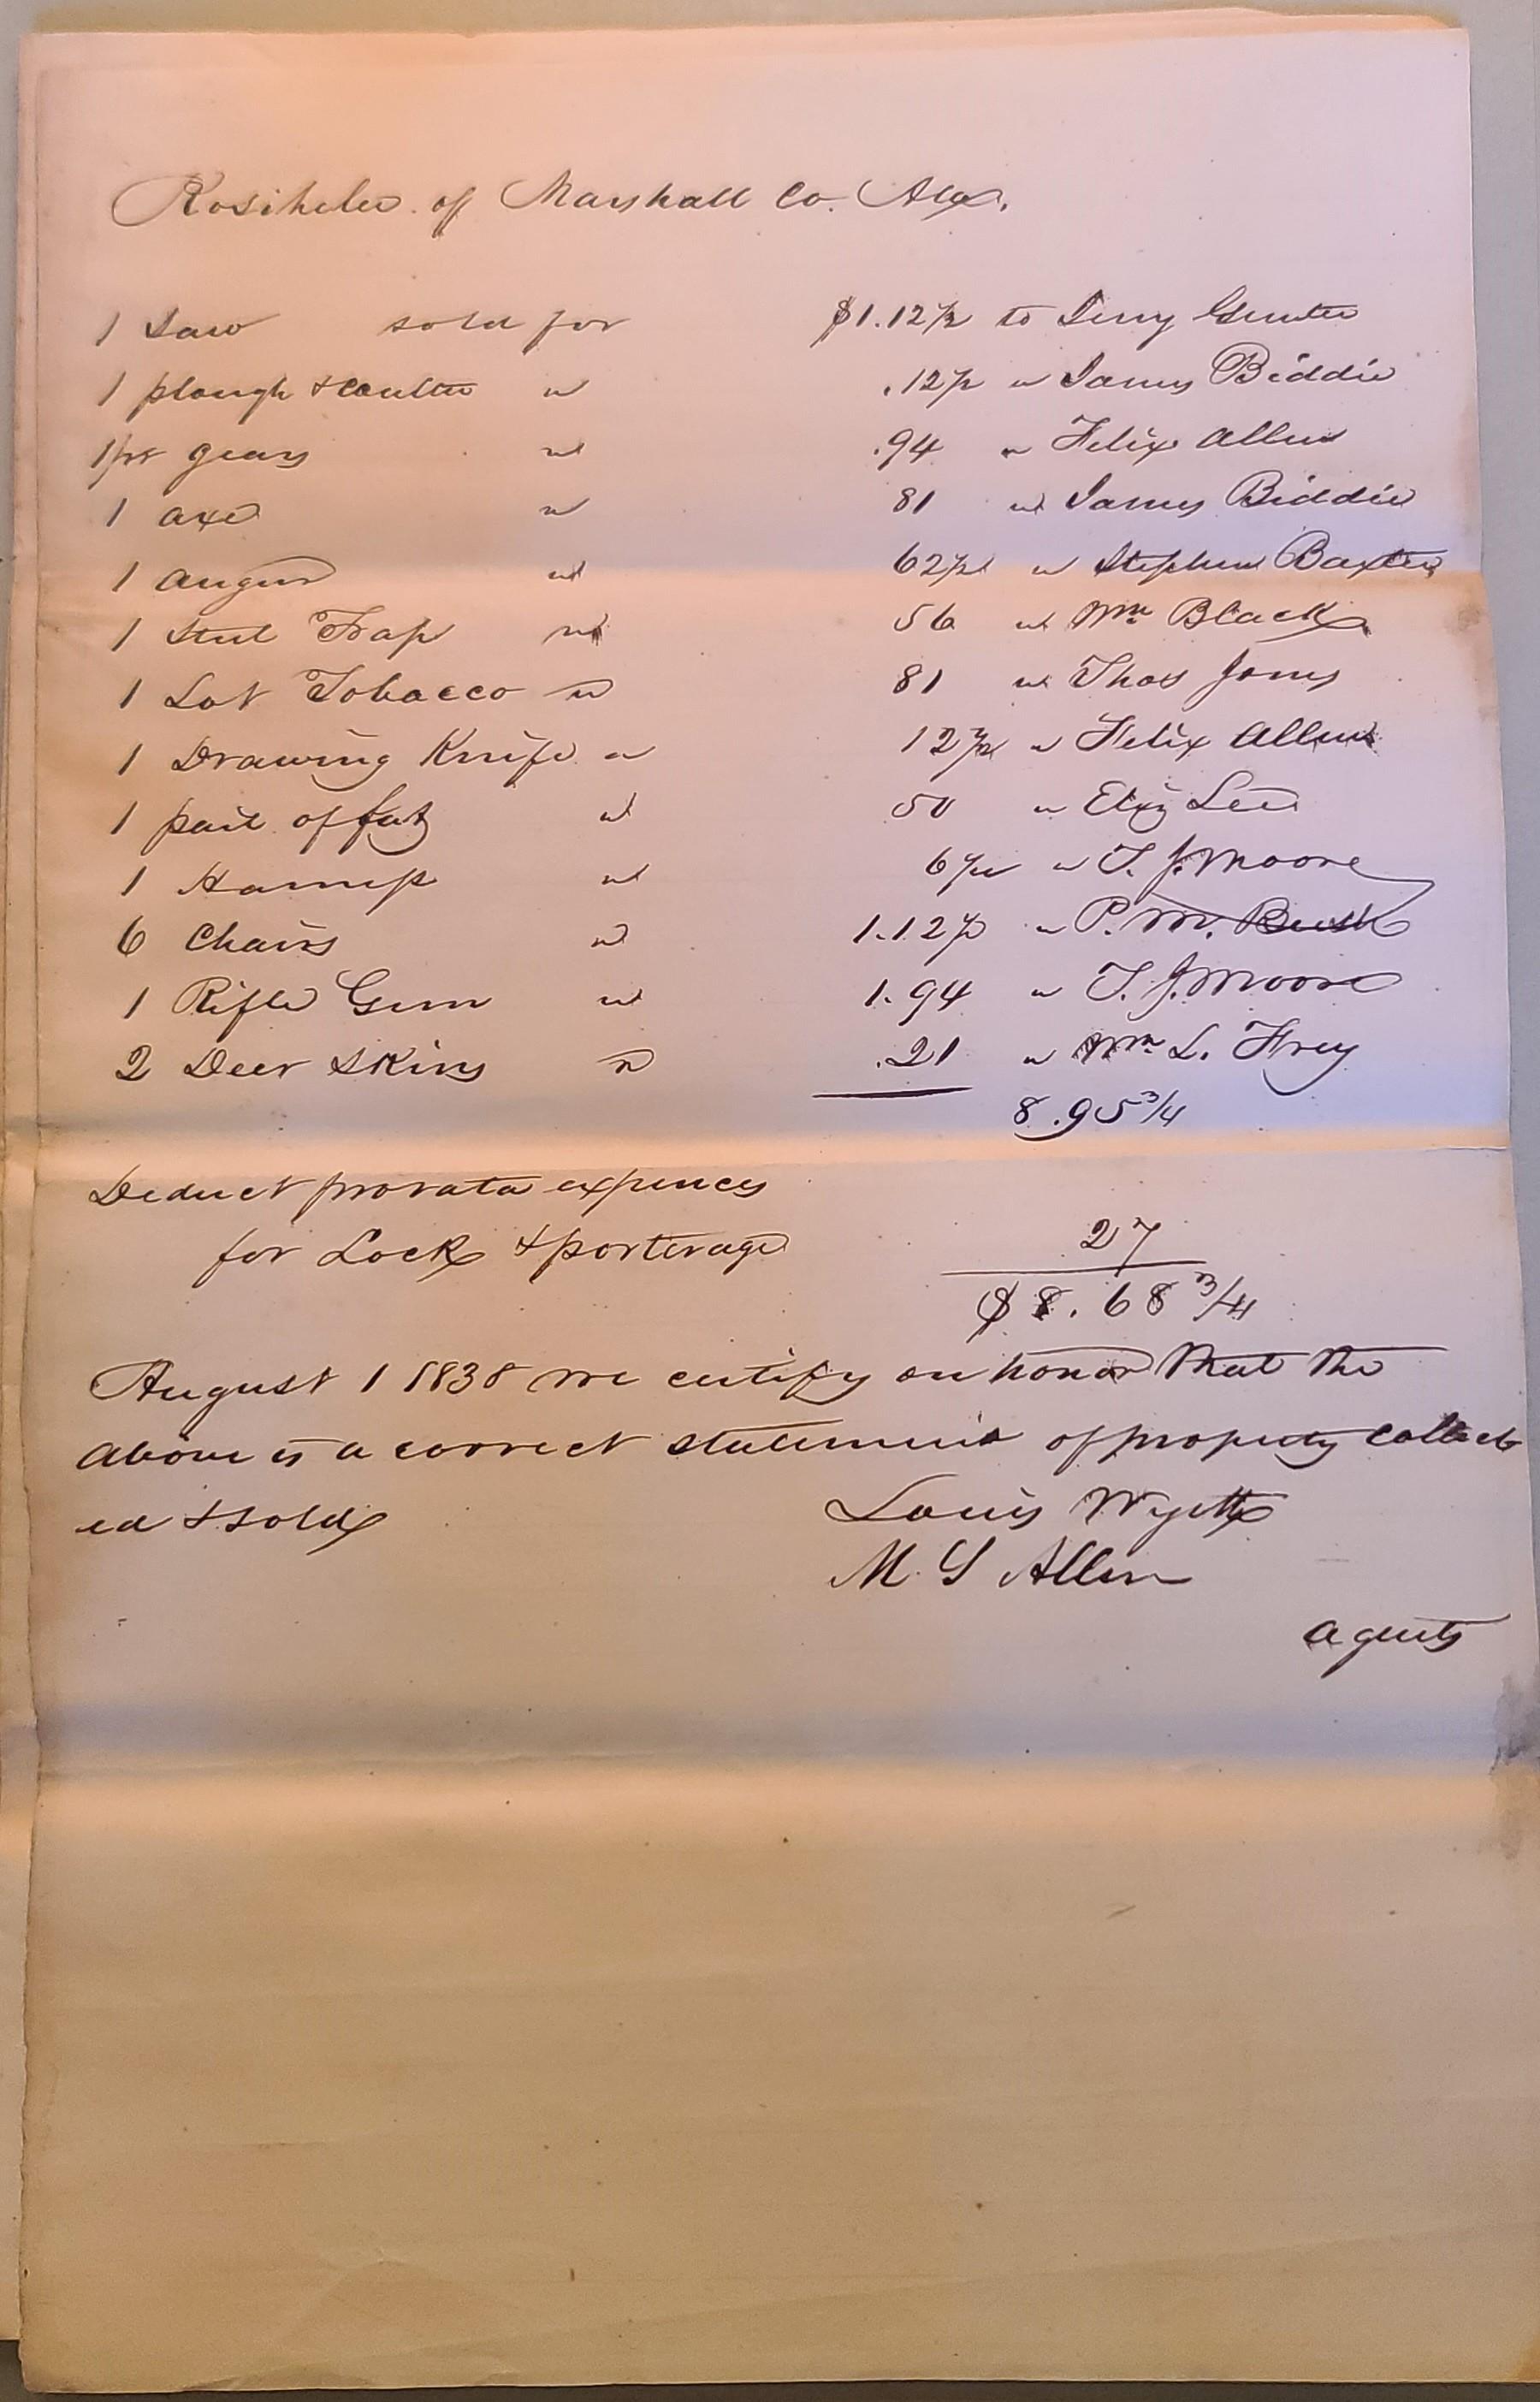 Rosihelee of Marshall Co. Ala.
1 Saw sold for $1.12 1/2 to Jerry Gunter
1 plough & Coulter " .12 1/2 " James Biddie
1 pr gears " .94 " Felix Allen
1 axe " 81 " James Biddie
1 augur " 62 1/2 " Stephen Baxter
1 Steel Trap " 56 " Wm Black
1 Lot Tobacco " 81 " Thos Jones
1 Drawing Knife " 12 1/2 " Felix Allen
1 pail of fat " 50 " Eliz Lee
1 " 6 1/4 " T. J. Moore
6 Chairs " 1.12 1/2 " P. M. Bush
1 Rifle Gun " 1.94 " T. J. Moore
2 Deer Skins " .21 " Wm L. Frey
8.95 3/4
Deduct prorata expences
for Lock & porterage 27
$8.68 3/4
August 1 1838 we certify on honor that the
above is a correct statement of property collect
ed & sold Louis Wyeth
M. G Allen
agents